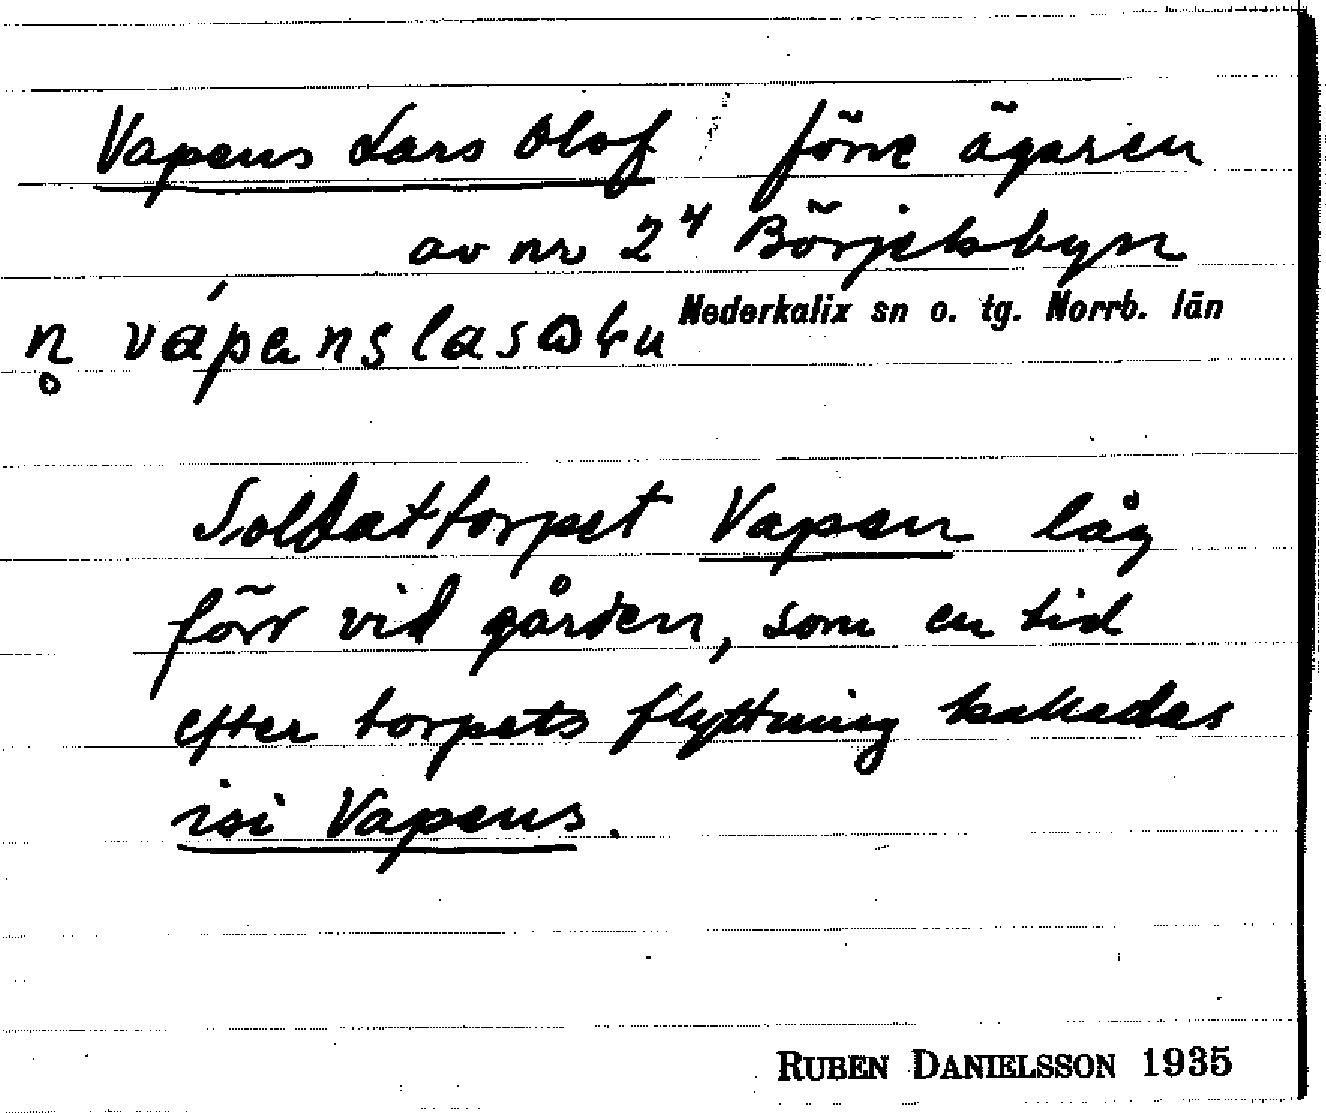 Vapens Lars Olof förre ägaren
av nr 2⁴ Börjelsbyn
Nederkalix sn o. tg. Norrb. län
n̥
Soldattorpet Vapen låg
förr vid gården, som en tid
efter torpets flyttning kallades
isi Vapens.
RUBEN DANIELSSON 1935